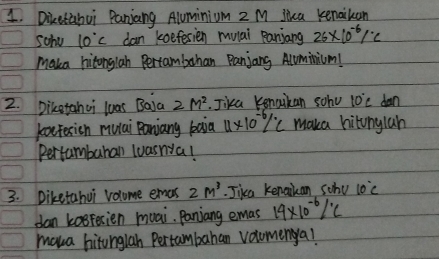 1. Diketahui Panjang Aluminium 2 M Jika kenaikan
suhu 10°c dan koefesien mulai Panjang 26x10⁻⁶/°c
Maka hitunglah Pertambahan Panjang Aluminium!
2. Diketahui luas Baja 2 M². Jika kenaikan suhu 10°c dan
koefesien mulai Panjang baja 11x10⁻⁶/°c maka hitunglah
Pertambahan luasnya!
3. Diketahui volume emas 2 M³. Jika kenaikan suhu 10°c
dan koefesien muai. Panjang emas 19x10⁻⁶/°c
maka hitunglah Pertambahan volumenya!